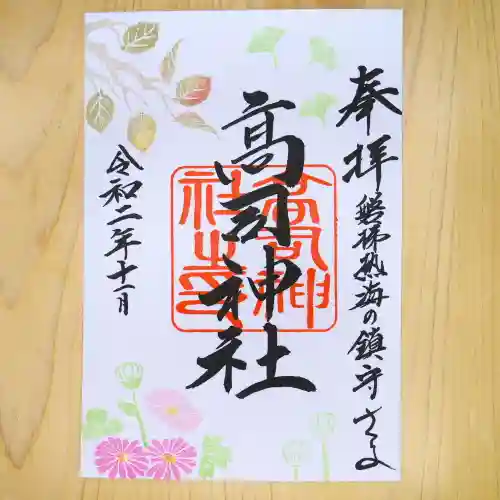 奉拝
磐梯熱海の鎮守さま
高司神社
高司神社之印
令和二年十一月